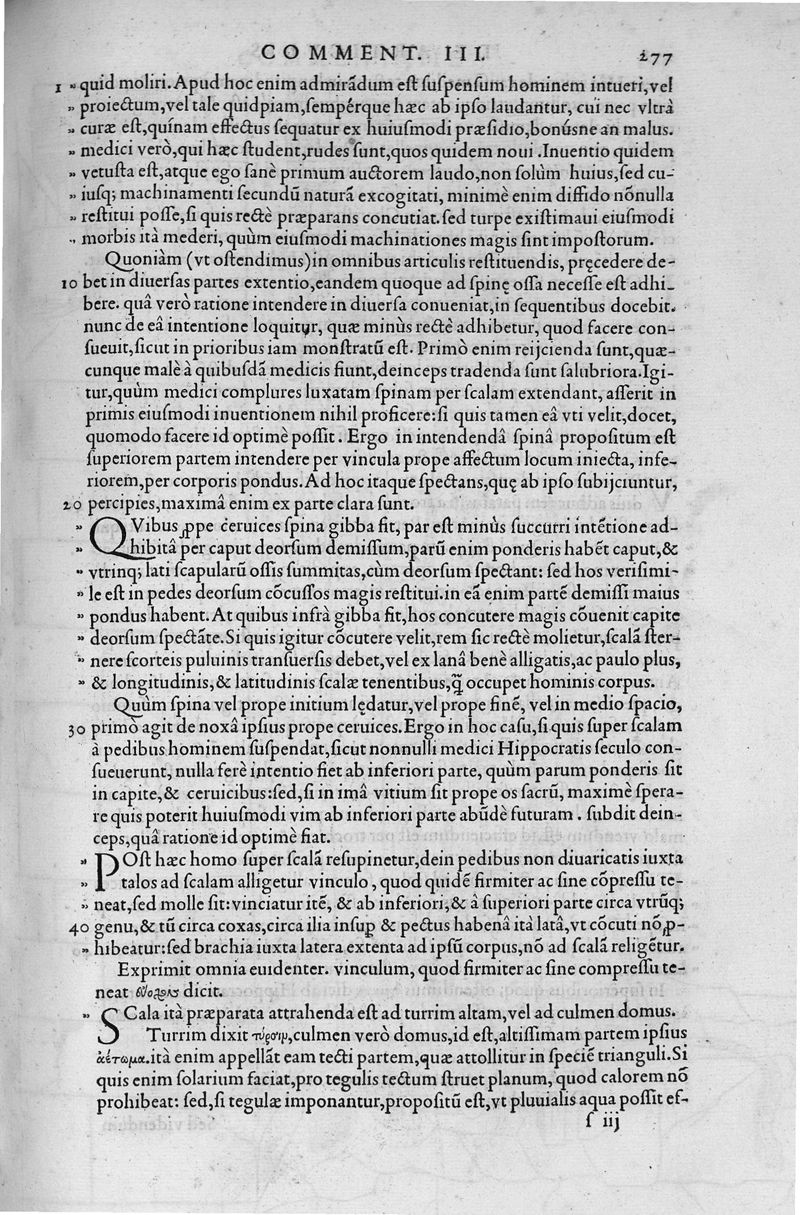 COMMENT. III. 277
1 » quid moliri. Apud hoc enim admirãdum est suspensum hominem intueri, vel
» proiectum, vel tale quidpiam, sempérque hæc ab ipso laudantur, cui nec vltrà
» curæ est, quínam effectus sequatur ex huiusmodi præsidio, bonúsne an malus.
» medici verò, qui hæc student, rudes sunt, quos quidem noui. Inuentio quidem
» vetusta est, atque ego sanè primum auctorem laudo, non solùm huius, sed cu-
» iusq; machinamenti secundũ naturã excogitati, minimè enim diffido nõnulla
» restitui posse, si quis rectè præparans concutiat. sed turpe existimaui eiusmodi
» morbis ità mederi, quùm eiusmodi machinationes magis sint impostorum.
Quoniàm (vt ostendimus) in omnibus articulis restituendis, pręcedere de-
10 bet in diuersas partes extentio, eandem quoque ad spinę ossa necesse est adhi-
bere. quâ verò ratione intendere in diuersa conueniat, in sequentibus docebit.
nunc de eâ intentione loquitur, quæ minùs rectè adhibetur, quod facere con-
sueuit, sicut in prioribus iam monstratũ est. Primò enim reijcienda sunt, quæ-
cunque malè à quibusdã medicis fiunt, deinceps tradenda sunt salubriora. Igi-
tur, quùm medici complures luxatam spinam per scalam extendant, asserit in
primis eiusmodi inuentionem nihil proficere: si quis tamen eâ vti velit, docet,
quomodo facere id optimè possit. Ergo in intendendâ spinâ propositum est
superiorem partem intendere per vincula prope affectum locum iniecta, infe-
riorem, per corporis pondus. Ad hoc itaque spectans, quę ab ipso subijciuntur,
20 percipies, maximâ enim ex parte clara sunt.
» QVibus ꝓpe ceruices spina gibba fit, par est minùs succurri intẽtione ad-
» hibitâ per caput deorsum demissum, parũ enim ponderis habẽt caput, &
» vtrinq; lati scapularũ ossis summitas, cùm deorsum spectant: sed hos verisimi-
» le est in pedes deorsum cõcussos magis restitui. in eã enim partẽ demissi maius
» pondus habent. At quibus infrà gibba fit, hos concutere magis cõuenit capite
» deorsum spectãte. Si quis igitur cõcutere velit, rem sic rectè molietur, scalã ster-
» nere scorteis puluinis transuersis debet, vel ex lanâ benè alligatis, ac paulo plus,
» & longitudinis, & latitudinis scalæ tenentibus, ꝗ̃ occupet hominis corpus.
Quùm spina vel prope initium lędatur, vel prope finẽ, vel in medio spacio,
30 primò agit de noxâ ipsius prope ceruices. Ergo in hoc casu, si quis super scalam
à pedibus hominem suspendat, sicut nonnulli medici Hippocratis seculo con-
sueuerunt, nulla ferè intentio fiet ab inferiori parte, quùm parum ponderis sit
in capite, & ceruicibus: sed, si in imâ vitium sit prope os sacrũ, maximè spera-
re quis poterit huiusmodi vim ab inferiori parte abũdè futuram. subdit dein-
ceps, quâ ratione id optimè fiat.
» POst hæc homo super scalã resupinetur, dein pedibus non diuaricatis iuxta
» talos ad scalam alligetur vinculo, quod quidẽ firmiter ac sine cõpressu te-
» neat, sed molle sit: vinciatur itẽ, & ab inferiori, & à superiori parte circa vtrũq;
40 genu, & tũ circa coxas, circa ilia insuꝑ & pectus habenâ ità latâ, vt cõcuti nõ ꝓ-
» hibeatur: sed brachia iuxta latera extenta ad ipsũ corpus, nõ ad scalã religẽtur.
Exprimit omnia euidenter. vinculum, quod firmiter ac sine compressu te-
neat dicit.
» SCala ità præparata attrahenda est ad turrim altam, vel ad culmen domus.
Turrim dixit τύρσιν, culmen verò domus, id est, altissimam partem ipsius
ἀέτωμα. ità enim appellãt eam tecti partem, quæ attollitur in speciẽ trianguli. Si
quis enim solarium faciat, pro tegulis tectum struet planum, quod calorem nõ
prohibeat: sed, si tegulæ imponantur, propositũ est, vt pluuialis aqua possit ef-
s iij